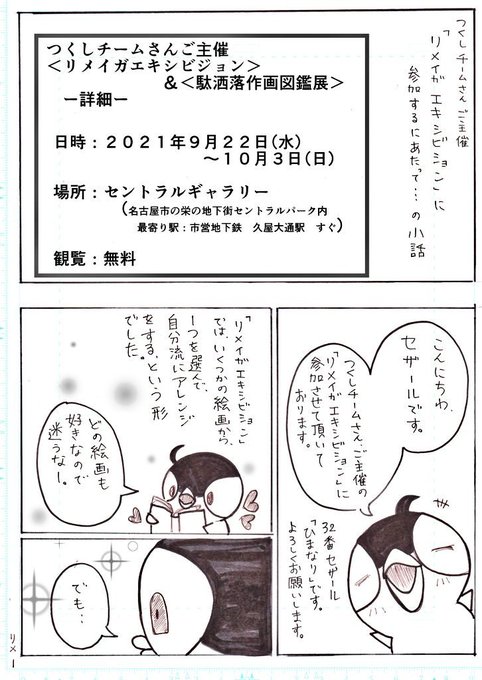 つくしチームさんご主催
「リメイガエキシビジョン」に
参加するにあたって…の小話
つくしチームさんご主催
<リメイガエキシビジョン>
&<駄洒落作画図鑑展>
ー詳細ー
日時：２０２１年９月２２日(水)
～１０月３日(日)
場所：セントラルギャラリー
(名古屋市の栄の地下街セントラルパーク内
最寄り駅：市営地下鉄　久屋大通駅　すぐ)
観覧：無料
こんにちわ、
セザールです。
つくしチームさん、ご主催の
「リメイガエキシビジョン」に
参加させて頂いて
おります。
32番セザール
「ひまなり」です。
よろしくお願いします。
「リメイガエキシビジョン」
では、いくつかの絵画から、
1つを選んで、
自分流にアレンジ
をする、という形
でした。
どの絵画も
好きなので
迷うなー。
でも…
リメ1